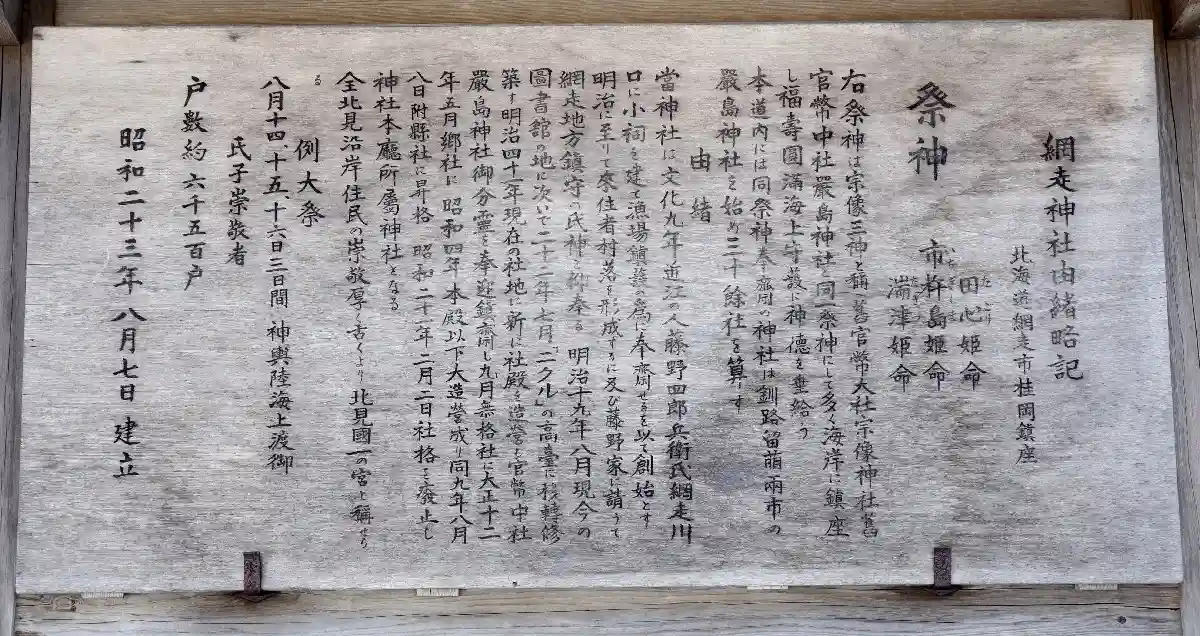 網走神社由緒略記
北海道網走市桂岡鎮座
祭神
田心姫命
市杵島姫命
湍津姫命
右祭神は宗像三神と稱し舊官幣大社宗像神社舊
官幣中社嚴島神社と同一祭神にして多く海岸に鎮座
し福壽圓滿海上守護に神德を垂給う
本道内には同祭神奉齋の神社は釧路留萌兩市の
嚴島神社を始め三十餘社を算す
由緒
當神社は文化九年近江の人藤野四郎兵衛氏網走川
口に小祠を建て漁場鎮護の爲に奉齋せるを以て創始とす
明治に至りて來住者村落を形成するに及び藤野家に請うて
網走地方鎮守の氏神と称奉る 明治十九年八月現今の
圖書館の地に次いで二十二年七月「ニクル」の高臺に移轉修
築す明治四十一年現在の社地に新に社殿を造營し官幣中社
嚴島神社御分靈を奉迎鎮齋し九月無格社に大正十二
年五月郷社に 昭和四年本殿以下大造營成り同九年八月
八日附縣社に昇格 昭和二十一年二月二日社格を廢止し
神社本廳所屬神社となる
全北見沿岸住民の崇敬厚く古くより北見國一の宮と稱せら
る
例大祭
八月十四、十五、十六日三日間 神輿陸海上渡御
氏子崇敬者
戸數約六千五百戸
昭和二十三年八月七日建立